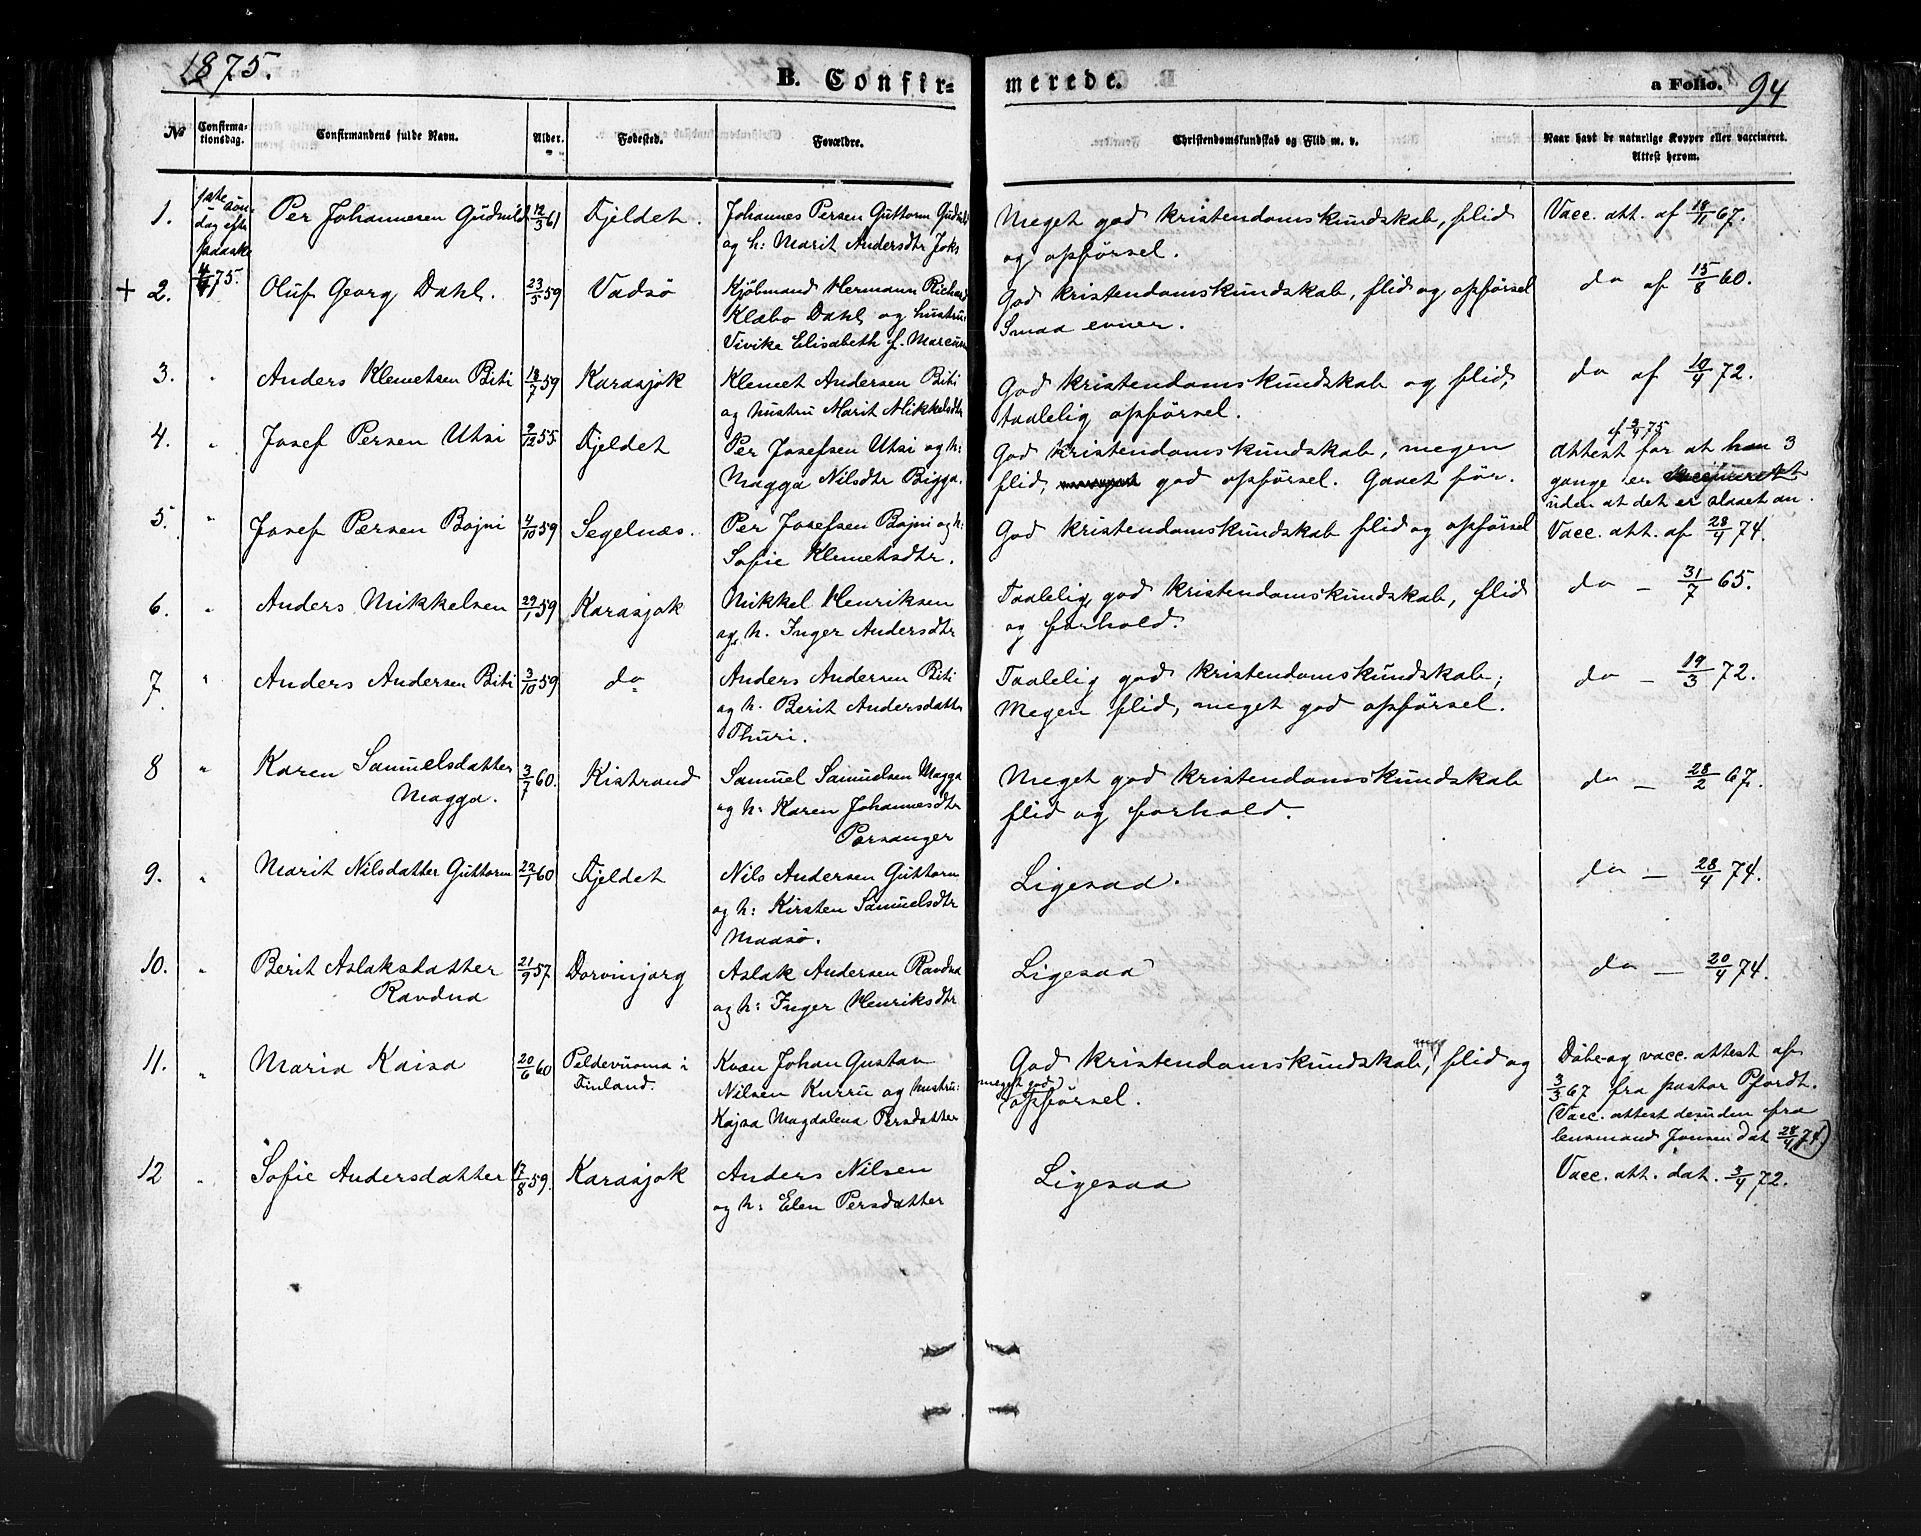 1875.
B. Confirmerede.
a Folio. 94
No Confirmationsdag. Confirmandens fulde Navn. Alder. Fødested. Forældre. Christendomskundskab og Flid m. v. Naar havt de naturlige Kopper eller vaccineret. Attest herom.
1. 1ste søndag efter paaske 4/4 75. Per Johannesen Gudmild 12/3 61 Fjeldet. Johannes Persen Guttorm
og h: Marit Andersdtr Joks
Meget god kristendomskundskab, flid
og opførsel.
Vacc. att. af 18/11 67.
+ 2. Oluf Georg Dahl. 23/5 59 Vadsø Kjøbmand Hermann Richard
Klæbo Dahl og hustru:
Vivike Elisabeth f. Marcussen
God kristendomskundskab, flid og opførsel
Smaa evner.
do af 15/8 60.
3. " Anders Klemetsen Biti 18/7 59 Karasjok Klemet Andersen Biti
og hustru Marit Mikkelsdtr
God kristendomskundskab og flid,
taalelig opførsel.
do af 10/4 72.
4. " Josef Persen Utsi 9/12 55 Fjeldet Per Josefsen Utsi og h:
Magga Nilsdtr Bigga.
God kristendomskundskab, megen
flid, meget god opførsel. Gaaet før.
af 2/4 75
Attest for at han 3
gange er vaccineret
uden at det er slaaet an.
5. " Josef Persen Bojni 4/10 59 Segelnæs. Per Josefsen Bojni og h:
Sofie Klemetsdtr.
God kristendomskundskab flid og opførsel
Vacc. att. af 28/4 74.
6. " Anders Mikkelsen 29/1 59 Karasjok Mikkel Henriksen
og h. Inger Andersdtr
Taalelig god kristendomskundskab, flid
og forhold.
do – 31/7 65.
7. " Anders Andersen Biti 3/10 59 do Anders Andersen Biti
og h. Berit Andersdatter
Thuri.
Taalelig god kristendomskundskab;
Megen flid, meget god opførsel.
do – 19/3 72.
8 " Karen Samuelsdatter
Magga. 3/7 60. Kistrand Samuel Samuelsen Magga
og h: Karen Johannesdtr
Porsanger
Meget god kristendomskundskab
flid og forhold.
do – 28/2 67.
9. " Marit Nilsdatter Guttorm 22/1 60 Fjeldet Nils Andersen Guttorm
og h: Kirsten Samuelsdtr
Maasø.
Ligesaa.
do – 28/4 74.
10. " Berit Aslaksdatter
Ravdna 21/9 57. Dorvinjarg Aslak Andersen Ravdna
og h: Inger Henriksdtr
Ligesaa
do – 20/4 74.
11. " Maria Kaisa 20/6 60 Peldevuoma i
Finland. Kvæn Johan Gustav
Nilsen Kurru og hustru:
Kajsa Magdalena Persdatter
God kristendomskundskab, flid og
meget god
opførsel.
Døbe- og vacc. attest af
3/3 67 fra pastor Pfordt.
(Vacc. attest desuden fra
lensmand Jonsen dat 28/4 74)
12 " Sofie Andersdatter 17/8 59. Karasjok Anders Nilsen
og h: Elen Persdatter
Ligesaa
Vacc. att. dat. 3/4 72.